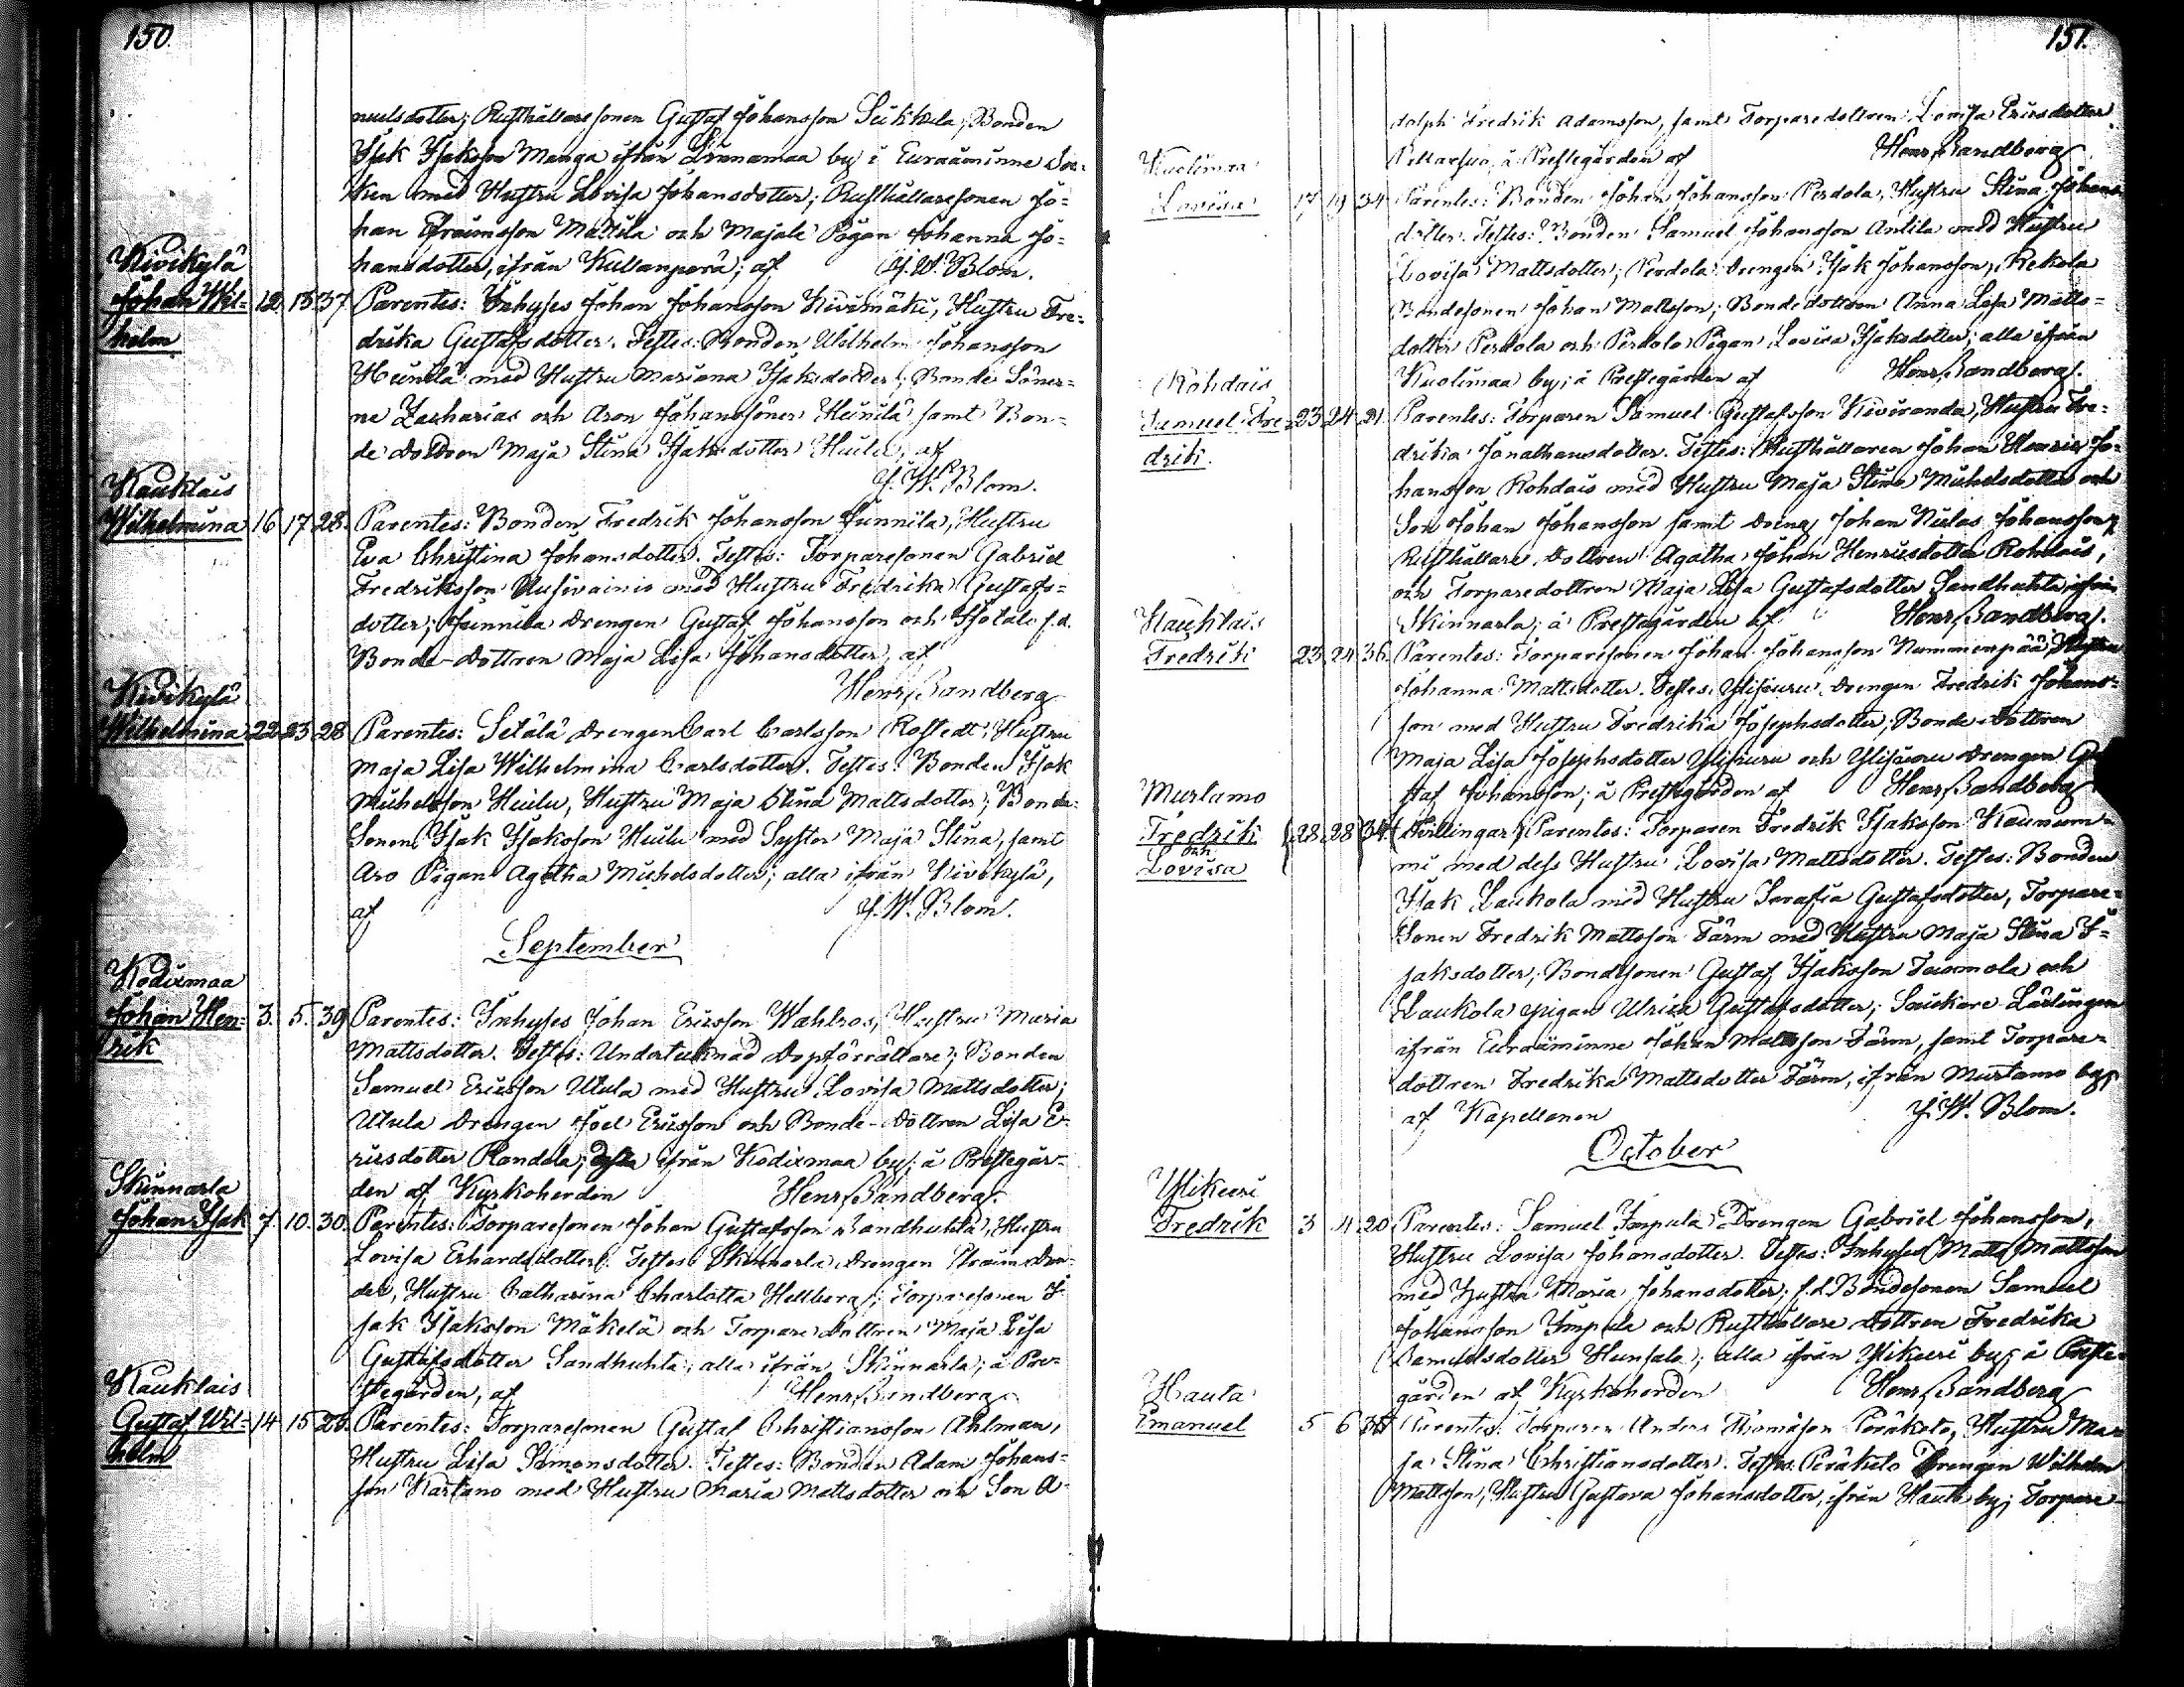 150.
nuelsdotter; Rusthållaresonen Gustaf Johansson Sukkala; Bonden
Isak Isaksson Manga ifrån Linnamaa by i Euraåminne Soc-
ken med Hustru Lovisa Johansdotter; Rusthållaresonen Jo-
han Efraimsson Mattila och Majala Pigan Johanna Jo-
hansdotter, ifrån Kullanperä; af J. W. Blom.
Kivikylä
Johan Wil- 12. 13 37. Parentes: Inhyses Johan Johansson Kivimäki, Hustru Fre-
helm
drika Gustafsdotter. Testes: Bonden Wilhelm Johansson
Heinilä med Hustru Mariana Isaksdotter; Bonde Söner-
ne Zacharias och Aron Johanssöner Heinilä samt Bon-
de dottren Maja Stina Isaksdotter Huilu; af
J. W. Blom.
Kauklais
Wilhelmina 16 17 28. Parentes: Bonden Fredrik Johansson Junnila, Hustru
Eva Christina Johansdotter. Testes: Torparesonen Gabriel
Fredriksson Uusivainio med Hustru Fredrika Gustafs-
dotter; Junnila Drengen Gustaf Johansson och Isotalo f.d.
Bonde-dottren Maja Lisa Johansdotter, af
Henr. Sandberg
Kivikylä
Wilhelmina 22 23 28 Parentes: Seläla Drengen Carl Carlsson Rostedt; Hustru
Maja Lisa Wilhelmina Carlsdotter. Testes: Bonden Isak
Michelsson Huilu, Hustru Maja Stina Mattsdotter; Bonde-
Sonen Isak Isaksson Huilu med Syster Maja Stina, samt
Aro Pigan Agatha Michelsdotter; alla ifrån Kivikylä,
af J. W. Blom.
September
Kodixmaa
Johan Hen- 3. 5. 39 Parentes: Inhyses Johan Ericsson Wahlros, Hustru Maria
rik
Mattsdotter. Testes: Undertecknad Dopförrättare; Bonden
Samuel Ericsson Utula med Hustru Lovisa Mattsdotter;
Utula Drengen Joel Ericsson och Bonde-dottren Lisa E-
ricsdotter Randala; ifrån Kodixmaa by; å Prestegår-
den af Kyrkoherden Henr. Sandberg.
Skinnarla
Johan Isak 7. 10. 30. Parentes: Torparesonen Johan Gustafsson Sandhuhta, Hustru
Lovisa Erhardsdotter. Testes: Skinnarla Drengen Efraim
der, Hustru Catharina Charlotta Hellberg; Torparesonen I-
sak Isaksson Mäkelä och Torpare dottren Maja Lisa
Gustafsdotter Sandhuhta; alla ifrån Skinnarla; å Pre-
stegården, af Henr. Sandberg
Kauklais
Gustaf Wil- 14 15 23. Parentes: Torparesonen Gustaf Christiansson Ahlman,
helm
Hustru Lisa Simonsdotter. Testes: Bonden Adam Johans-
son Kartano med Hustru Maria Mattsdotter och Son A-
151.
dolph Fredrik Adamsson, samt Torparedottren Lovisa Ericsdotter
å Prestegården af Henr. Sandberg
Kuolimaa
Lovisa 17 19 34 Parentes: Bonden Johan Johansson Perdola, Hustru Stina Johans-
dotter. Testes: Bonden Samuel Johansson Antila med Hustru
Lovisa Mattsdotter; Perdola Drengen Isak Johansson, Rekola
Bondesonen Johan Mattsson; Bondedottren Anna Lisa Matts-
dotter Perdola och Perdola Pigan Lovisa Isaksdotter; alla ifrån
Kuolimaa by; å Prestegården af Henr. Sandberg.
Rohdais
Samuel Fre- 23 24 21 Parentes: Torparen Samuel Gustafsson Kiviranda, Hustru Fre-
drik.
drika Jonathansdotter. Testes: Rusthållaren Johan Henric Jo-
hansson Rohdais med Hustru Maja Stina Michelsdotter och
Son Johan Johansson samt Dreng Johan Niclas Johansson;
Rusthållare dottren Agatha Johan Henricsdotter Rohdais,
och Torparedottren Maja Lisa Gustafsdotter Sandhuhta, ifrån
Skinnarla; å Prestegården af Henr. Sandberg.
Kauklais
Fredrik 23 24 36. Parentes: Torparesonen Johan Johansson Nummenpää, Hustru
Johanna Mattsdotter. Testes: Ylisiuru Drengen Fredrik Johans-
son med Hustru Fredrika Josephsdotter; Bonde-dottren
Maja Lisa Josephsdotter Ylisiuru och Ylisiuru Drengen Gu-
staf Johansson; å Prestegården af Henr. Sandberg
Murtamo
Fredrik 28 28 34. (Tvillingar) Parentes: Torparen Fredrik Isaksson Kaunum-
och
Lovisa
mi med dess Hustru Lovisa Mattsdotter. Testes: Bonden
Isak Laukola med Hustru Serafia Gustafsdotter, Torpare-
Sonen Fredrik Mattsson Färm med Hustru Maja Stina I-
saksdotter; Bondesonen Gustaf Isaksson Tuomola och
Laukola pigan Ulrica Gustafsdotter; Snickare Lärlingen
ifrån Euraåminne Johan Mattsson Färm, samt Torpare-
dottren Fredrika Mattsdotter Färm, ifrån Murtamo by;
af Kapellanen J. W. Blom.
October
Ylikieri
Fredrik 3 4 20 Parentes: Samuel Impula Drengen Gabriel Johansson,
Hustru Lovisa Johansdotter. Testes: Inhyses Matts Mattsson
med Hustru Maria Johansdotter; f.d. Bondesonen Samuel
Johansson Impula och Rusthållare dottren Fredrika
Samuelsdotter Hunsala; alla ifrån Ylikieri by; å Preste-
gården af Kyrkoherden Henr. Sandberg
Hauta
Emanuel 5 6 Parentes: Torparen Anders Thomasson Peräkoto, Hustru Ma-
ja Stina Christiansdotter. Testes: Peräkoto Drengen Wilhelm
Mattsson, Hustru Gustava Johansdotter, ifrån Hauta by; Torpare-